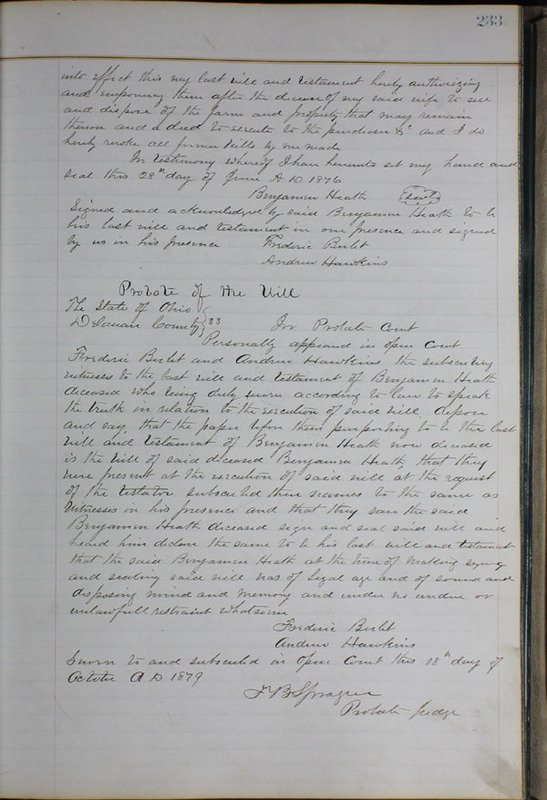 233
into effect this my last will and testament hereby authorizing
and empowering them after the decease of my said wife to sell
and dispose of the farm and property that may remain
thereon and a deed to execute to the purchaser &c and I do
hereby revoke all former wills by me made
In testimony whereof I have hereunto set my hand and
seal this 28th day of June A D 1876
Benjamen Heath (Seal)
Signed and acknowledged by said Benjamen Heath to be
his last will and testament in our presence and signed
by us in his presence Frederic Berlet
Andrew Hawkins
Probate of the Will
The State of Ohio
Delaware County } SS In Probate Court
Personally appeared in open Court
Frederic Berlet and Andrew Hawkins the subscribing
witnesses to the last will and testament of Benjamen Heath
deceased who being duly sworn according to law to speak
the truth in relation to the execution of said will depose
and say, that the paper before them purporting to be the last
will and testament of Benjamen Heath now deceased
is the will of said deceased Benjamen Heath, that they
were present at the execution of said will at the request
of the testator subscribed their names to the same as
Witnesses in his presence and that they saw the said
Benjamen Heath deceased sign and seal said will and
heard him declare the same to be his last will and testament
that the said Benjamen Heath at the time of making signing
and sealing said will was of legal age and of sound and
disposing mind and memory and under no undue or
unlawfull restraint whatsoever
Frederic Berlet
Andrew Hawkins
Sworn to and subscribed in open Court this 18th day of
October A D 1879
F B Sprague
Probate Judge